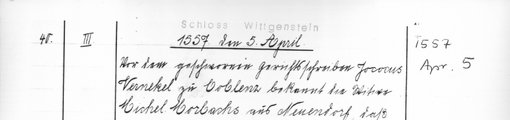 Schloss Wittgenstein
40. III 1557 den 5. April. 1557
Apr. 5
Vor dem geschworenen Gerichtsschreiber Jococus
Vernekel zu Coblenz bekennt die Witwe
Michel Morbachs aus Neuendorf, daß